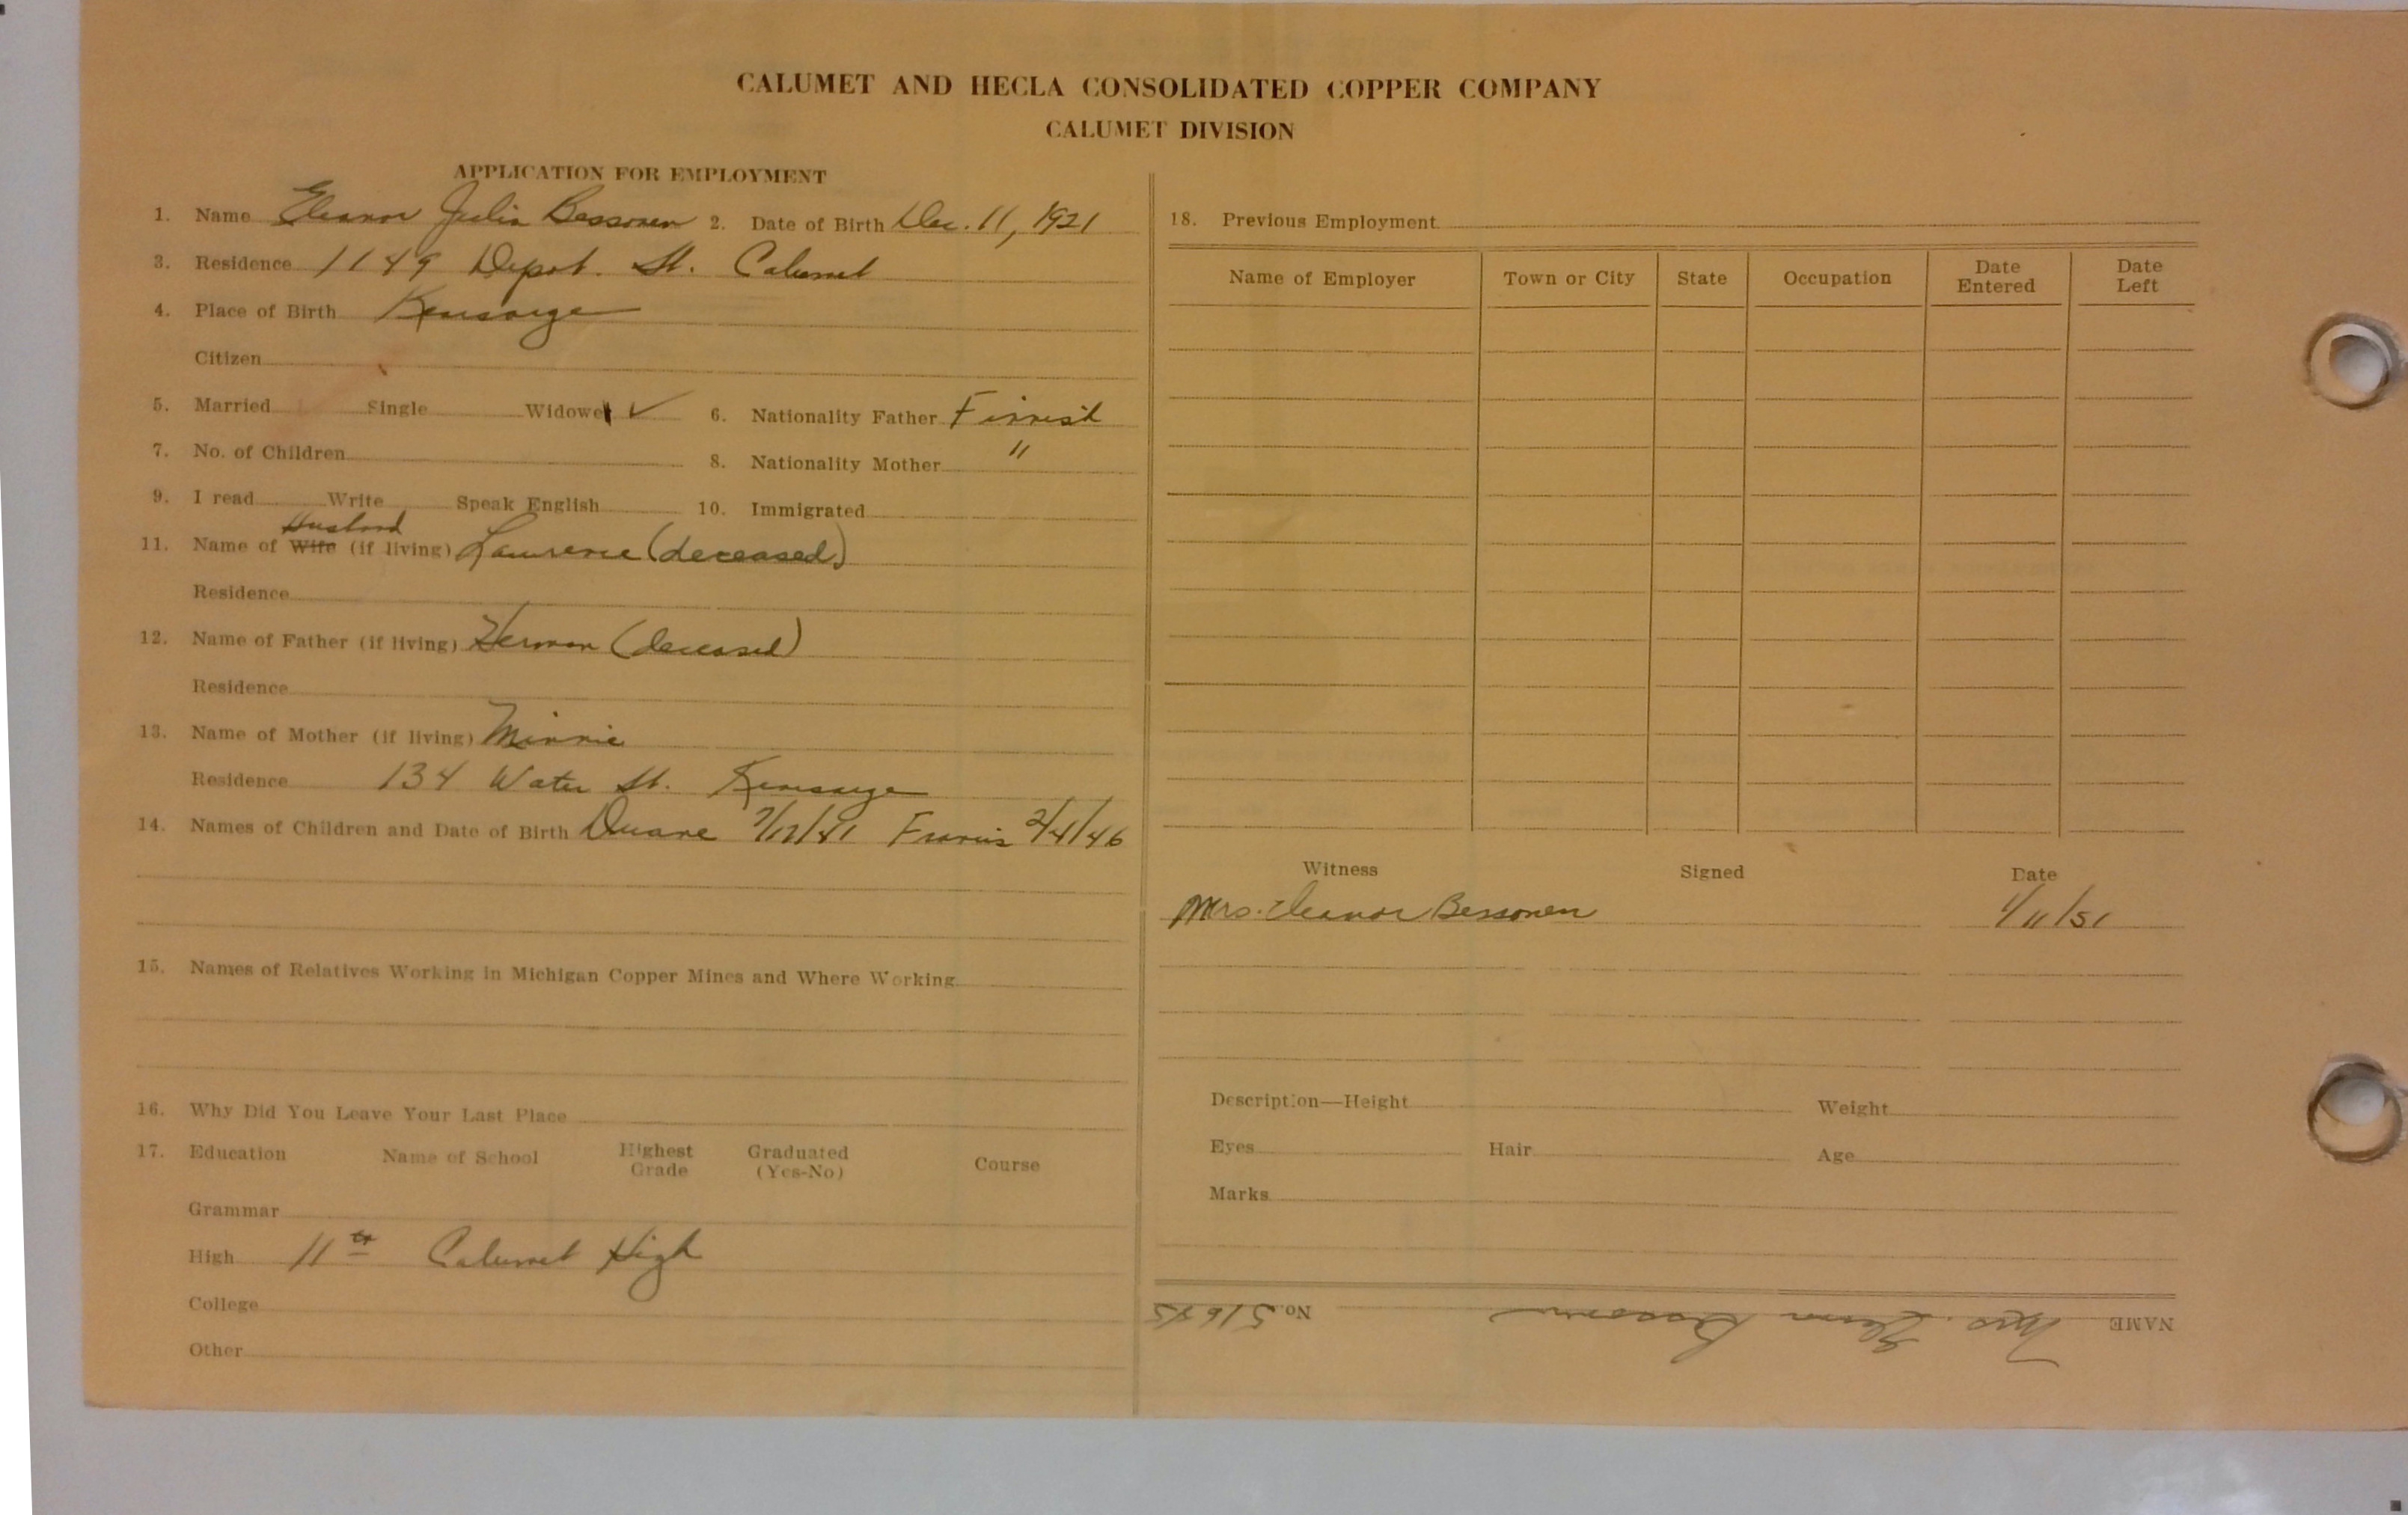 CALUMET AND HECLA CONSOLIDATED COPPER COMPANY
CALUMET DIVISION
APPLICATION FOR EMPLOYMENT
1. Name Eleanor Julia Bessonen 2. Date of Birth Dec. 11, 1921
3. Residence 1149 Depot. St. Calumet
4. Place of Birth Kearsarge
Citizen
5. Married Single Widowe ✓ 6. Nationality Father Finnish
7. No. of Children 8. Nationality Mother "
9. I read Write Speak English 10. Immigrated
Husband
11. Name of Wife (if living) Lawrence (deceased)
Residence
12. Name of Father (if living) Herman (deceased)
Residence
13. Name of Mother (if living) Minnie
Residence 134 Water St. Kearsarge
14. Names of Children and Date of Birth Duane Francis 2/4/46
15. Names of Relatives Working in Michigan Copper Mines and Where Working
16. Why Did You Leave Your Last Place
17. Education Name of School Highest Grade Graduated (Yes-No) Course
Grammar
High 11th Calumet High
College
Other
18. Previous Employment
Name of Employer Town or City State Occupation Date Entered Date Left
Witness Signed Date
Mrs. Eleanor Bessonen 1/11/51
Description—Height Weight
Eyes Hair Age
Marks
NAME Mrs. Bessonen No. 51645